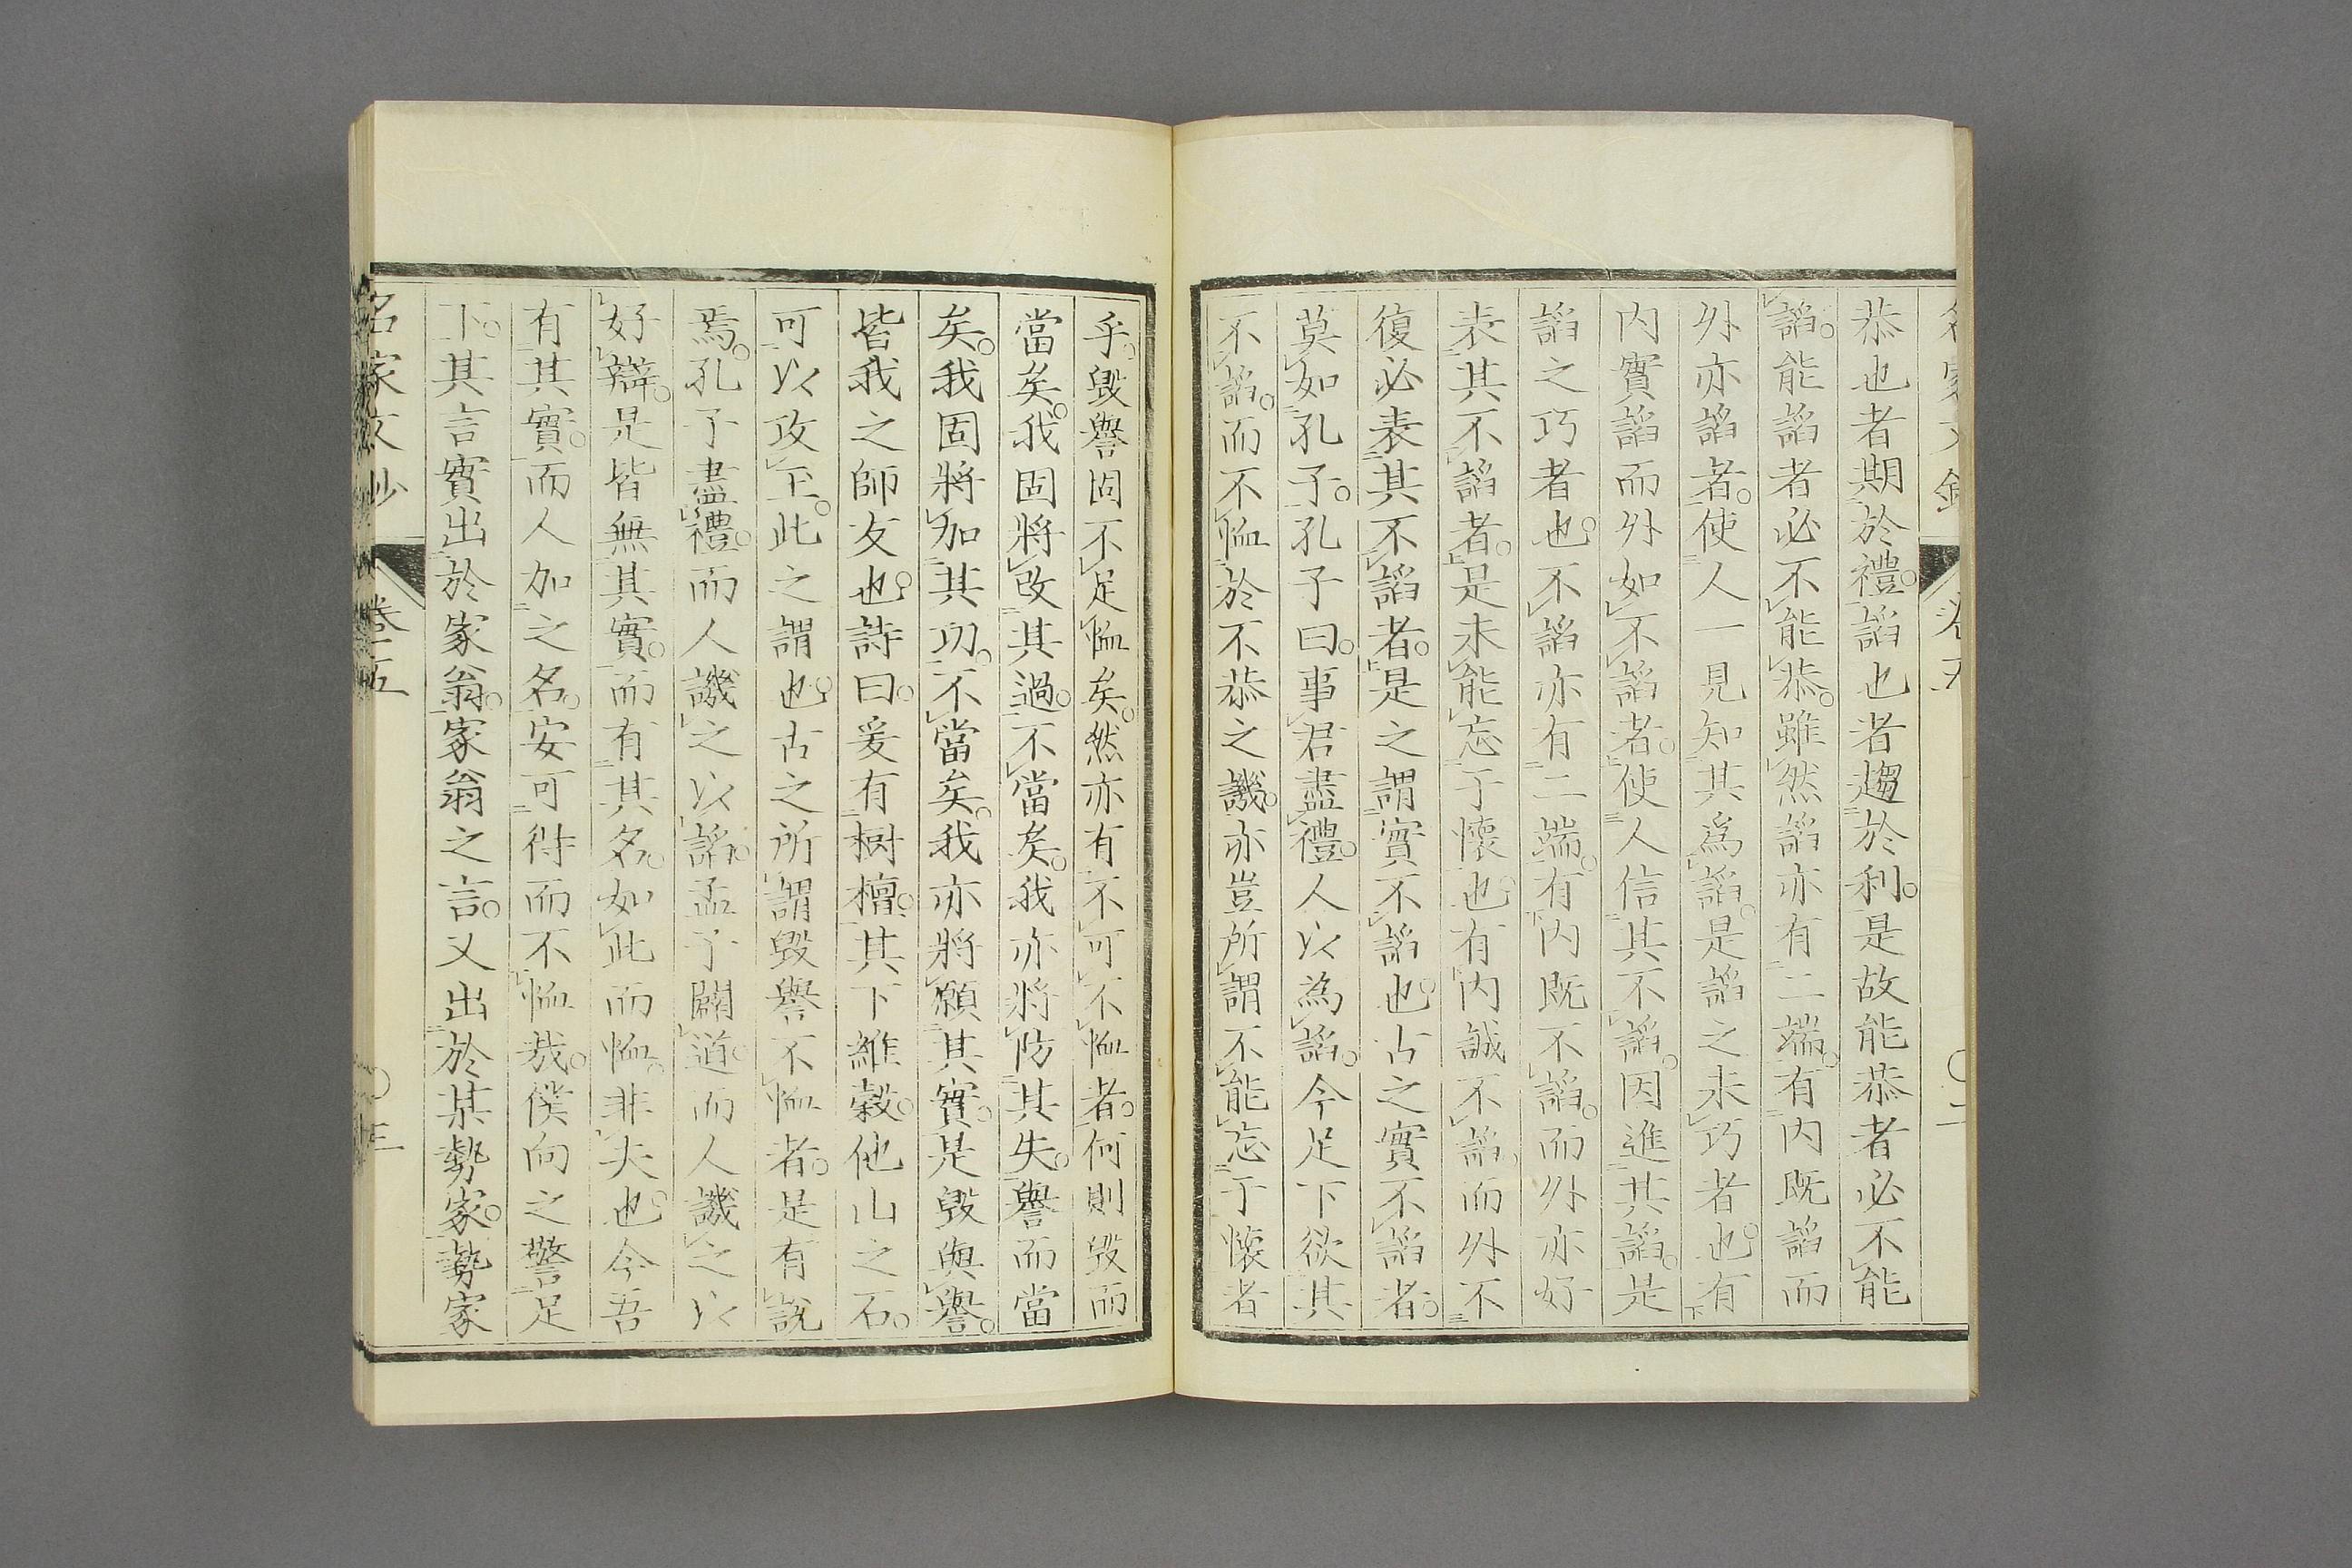 恭也者期於禮。諂也者趨於利。是故能恭者必不能
諂。能諂者必不能恭。雖然諂亦有二端。有內既諂而
外亦諂者。使人一見知其爲諂。是諂之未巧者也。有
內實諂而外如不諂者。使人信其不諂。因進其諂。是
諂之巧者也。不諂亦有二端。有內既不諂。而外亦好
表其不諂者。是未能忘于懷也。有內誠不諂。而外不
復必表其不諂者。是之謂實不諂也。古之實不諂者。
莫如孔子。孔子曰。事君盡禮。人以為諂。今足下欲其
不諂。而不恤於不恭之譏。亦豈所謂不能忘于懷者
乎。毀譽固不足恤矣。然亦有不可不恤者。何則毀而
當矣。我固將改其過。不當矣。我亦將防其失。譽而當
矣。我固將加其功。不當矣。我亦將願其實。是毀與譽。
皆我之師友也。詩曰。爰有樹檀。其下維榖。他山之石。
可以攻玉。此之謂也。古之所謂毀譽不恤者。是有說
焉。孔子盡禮。而人譏之以諂。孟子闢道。而人譏之以
好辯。是皆無其實。而有其名。如此而恤。非夫也。今吾
有其實。而人加之名。安可得而不恤哉。僕向之警足
下。其言實出於家翁。家翁之言。又出於某勢家。勢家
名家文抄 卷五 〇三